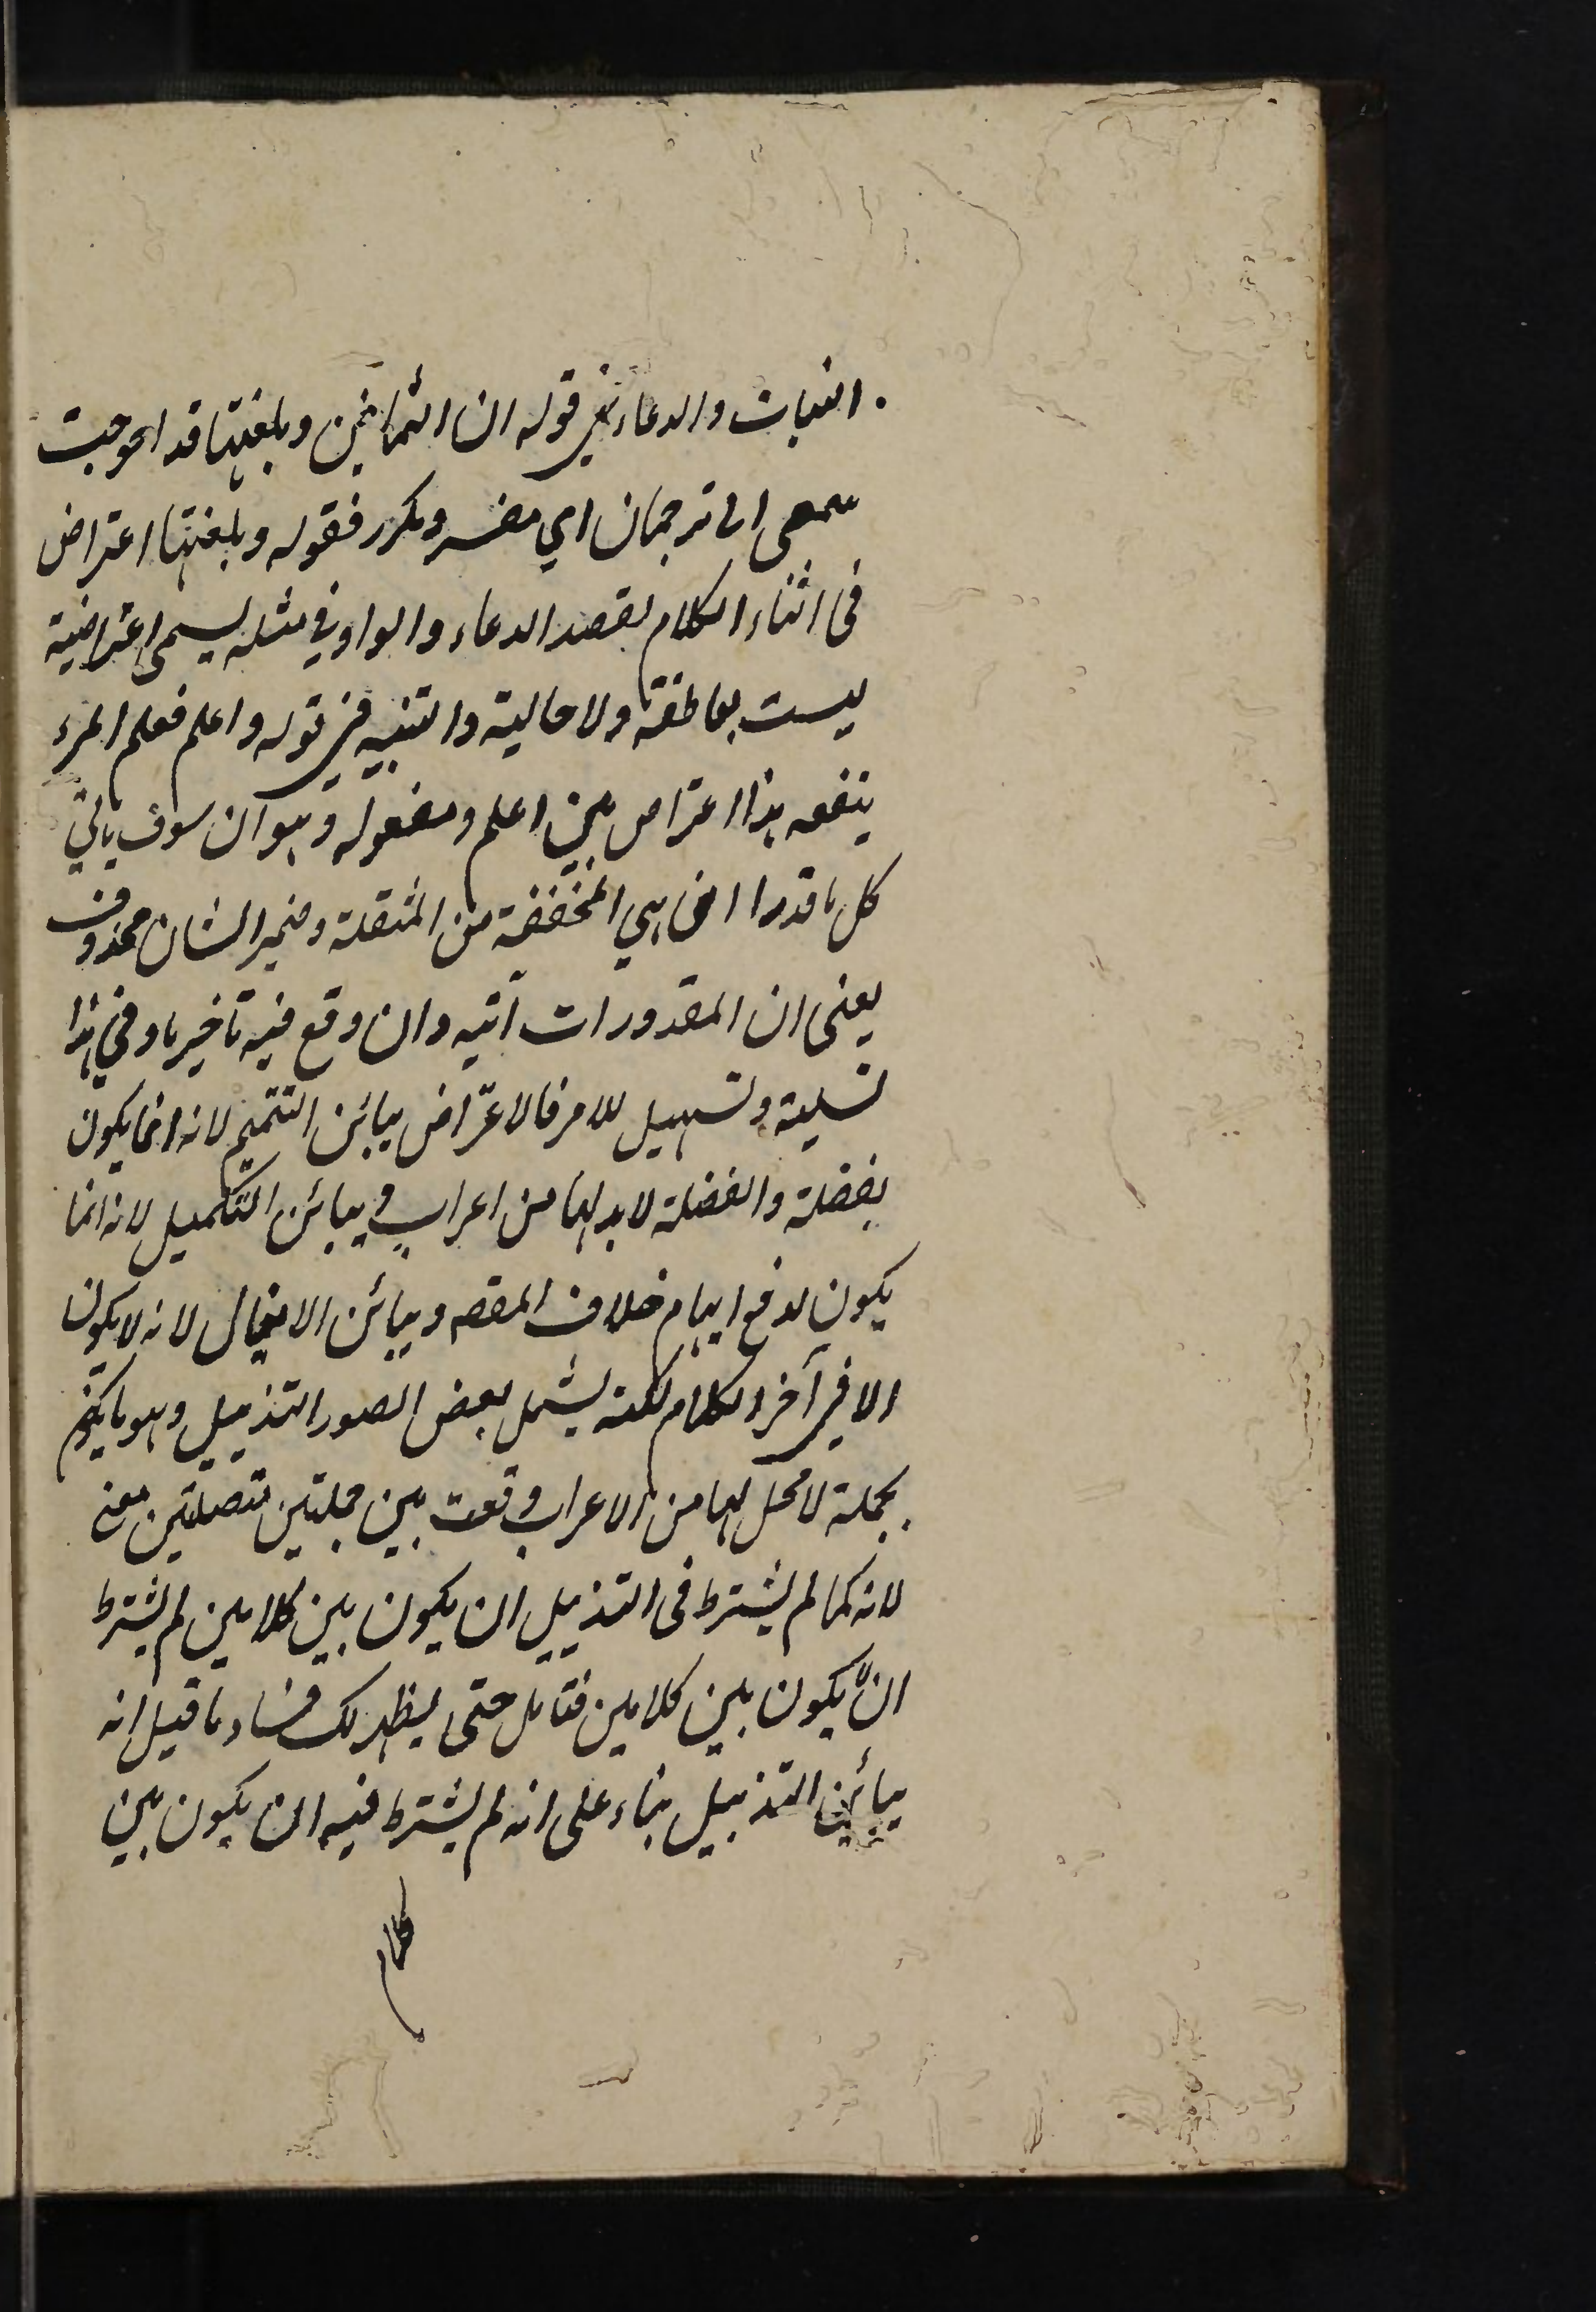 البنات والدعاء في قوله ان الثمانين وبلغتها قد احوجت
سمعى الى ترجمان اي مفسر ومكرر فقوله وبلغتها اعتراض
فى اثناء الكلام لقصد الدعاء والواو في مثله يسمى اعتراضية
ليست بعاطفة ولا حالية والتنبيه في قوله واعلم فعلم المرء
ينفعه هذا اعتراض بين اعلم ومفعوله وهو ان سوف ياتي
كل ما قدرا ان هي المخففة من المثقلة وضمير الشان محذوف
يعنى ان المقدورات آتيه وان وقع فيه تاخير ما وفي هذا
تسلية وتسهيل للامر فالاعتراض يبائن التتميم لانه انما يكون
بفضلة والفضلة لابد لها من اعراب ويبائن التكميل لانه انما
يكون لدفع ايهام خلاف المقصد ويبائن الايغال لانه لا يكون
الا في آخر الكلام لكنه يشمل بعض الصور التذييل وهو ما يكون
بجملة لا محل لها من الاعراب وقعت بين جملتين متصلتين معنى
لانه كما لم يشترط فى التذييل ان يكون بين كلامين لم يشترط
ان لا يكون بين كلامين فتامل حتى يظهر لك فساد ما قيل انه
يبائن التذييل بناء على انه لم يشترط فيه ان يكون بين
كلام